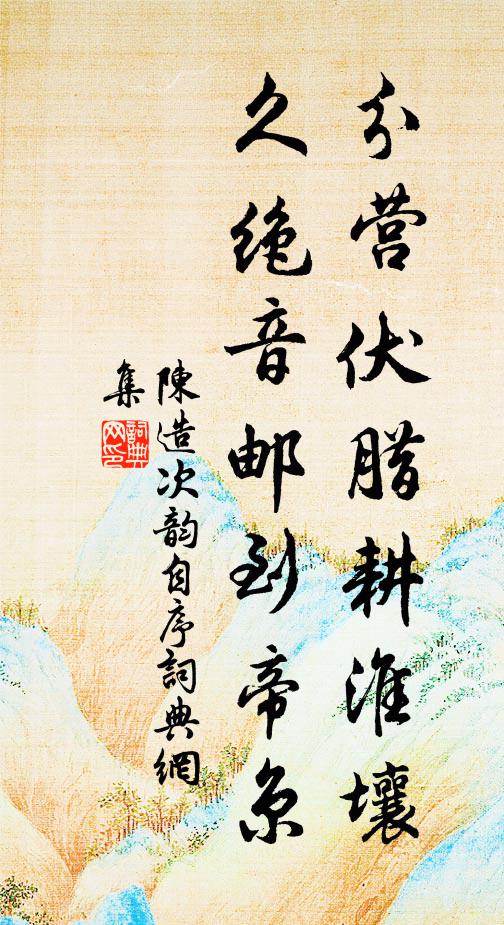 分营伏腊耕淮壤
久绝音邮到帝京
陳造次韵自序詞典網
集
詞典网印